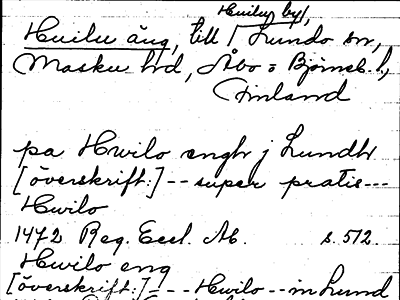 Huilu by),
Huilu äng, till / Lundo sn,
Masku hd, Åbo o Björneb. l,
Finland
pa Hwilo engh j Lundh
[överskrift:] -- super pratis ---
Hwilo
1472 Reg. Eccl. Ab. s. 512.
Hwilo eng
[överskrift:] --- Hwilo -- in Lund